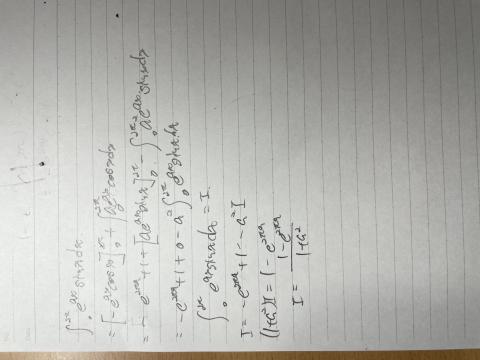 ∫₀^{2π} e^{ax} sin x dx
= [-e^{ax} cos x]₀^{2π} + ∫₀^{2π} a e^{ax} cos x dx
= -e^{2πa} + 1 + [a e^{ax} sin x]₀^{2π} - ∫₀^{2π} a² e^{ax} sin x dx
= -e^{2πa} + 1 + 0 - a² ∫₀^{2π} e^{ax} sin x dx
∫₀^{2π} e^{ax} sin x dx = I
I = -e^{2πa} + 1 - a² I
(1+a²) I = 1 - e^{2πa}
I = (1 - e^{2πa}) / (1+a²)